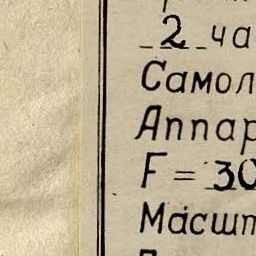 2 ча
Самол
Аппар
F = 30
Масшт